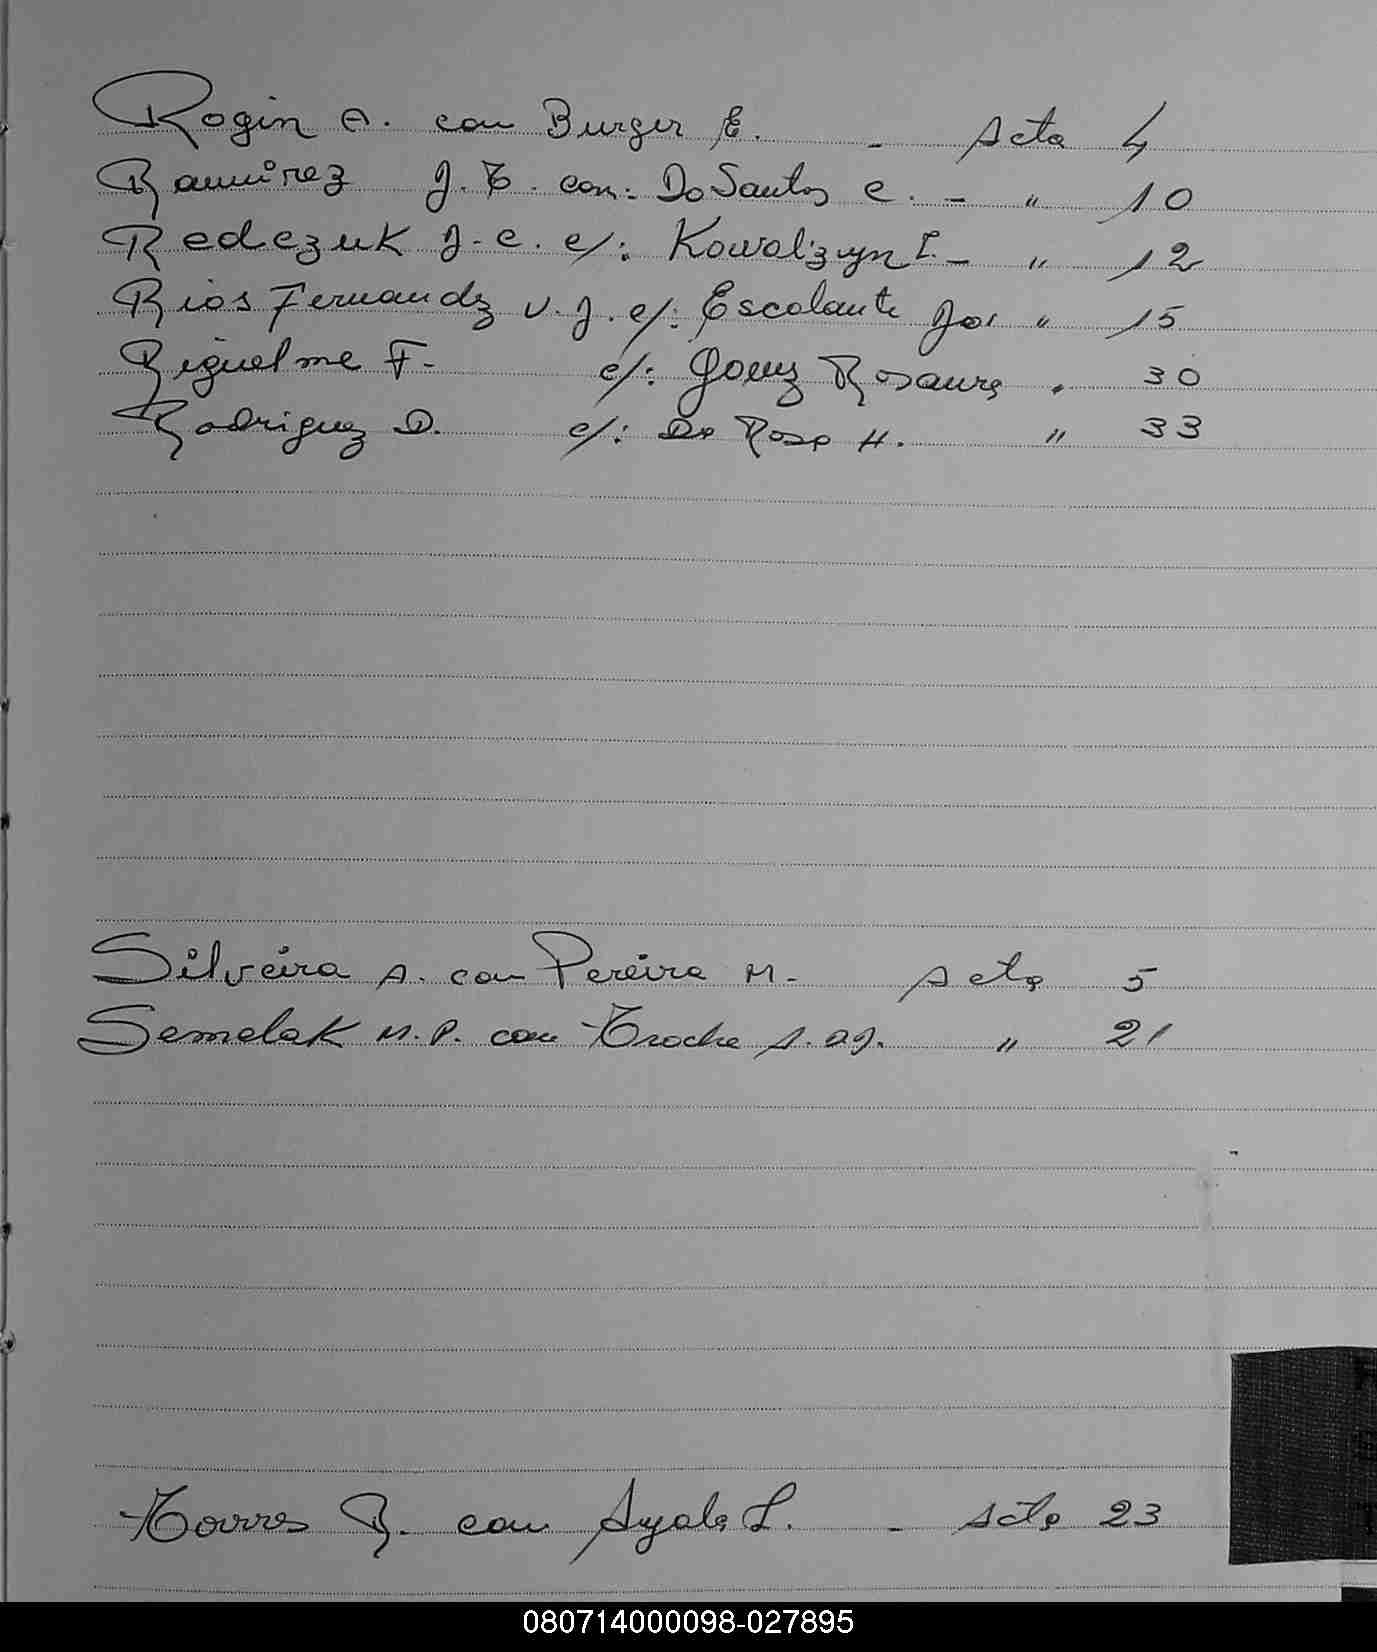 Rogin A. con Burger E. - Acta 4
Ramirez J. T. con: Do Santos C. - " 10
Redczuk J. C. c/: Kowalzyn I. - " 12
Rios Fernandz V. J. c/: Escalante " 15
Riquelme F. c/: Gomz Rosaura " 30
Rodriguez D. c/: Da Rosa H. " 33
Silveira A. con Pereira M. - Acta 5
Semelak M. P. con Troche A. " 21
Torres R. con Ayala L. - Acta 23
080714000098-027895